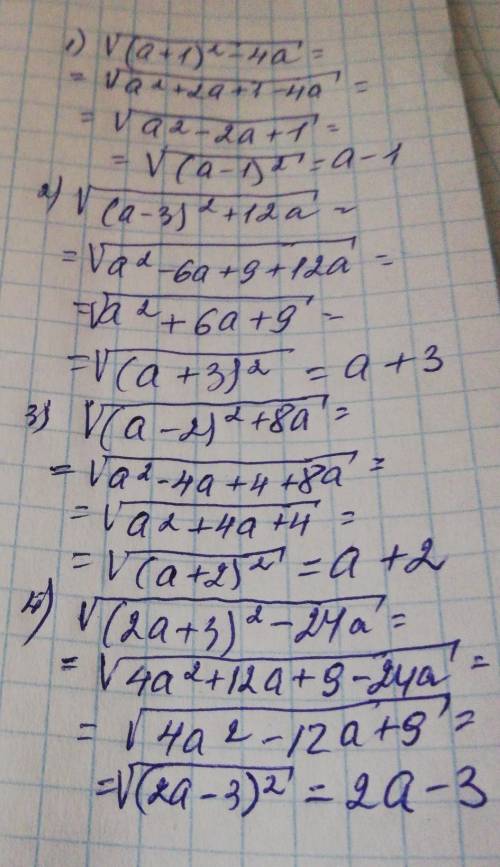 1) √(a+1)²-4a =
= √a²+2a+1-4a =
= √a²-2a+1 =
= √(a-1)² = a-1
2) √(a-3)²+12a =
= √a²-6a+9+12a =
= √a²+6a+9 =
= √(a+3)² = a+3
3) √(a-2)²+8a =
= √a²-4a+4+8a =
= √a²+4a+4 =
= √(a+2)² = a+2
4) √(2a+3)²-24a =
= √4a²+12a+9-24a =
= √4a²-12a+9 =
= √(2a-3)² = 2a-3